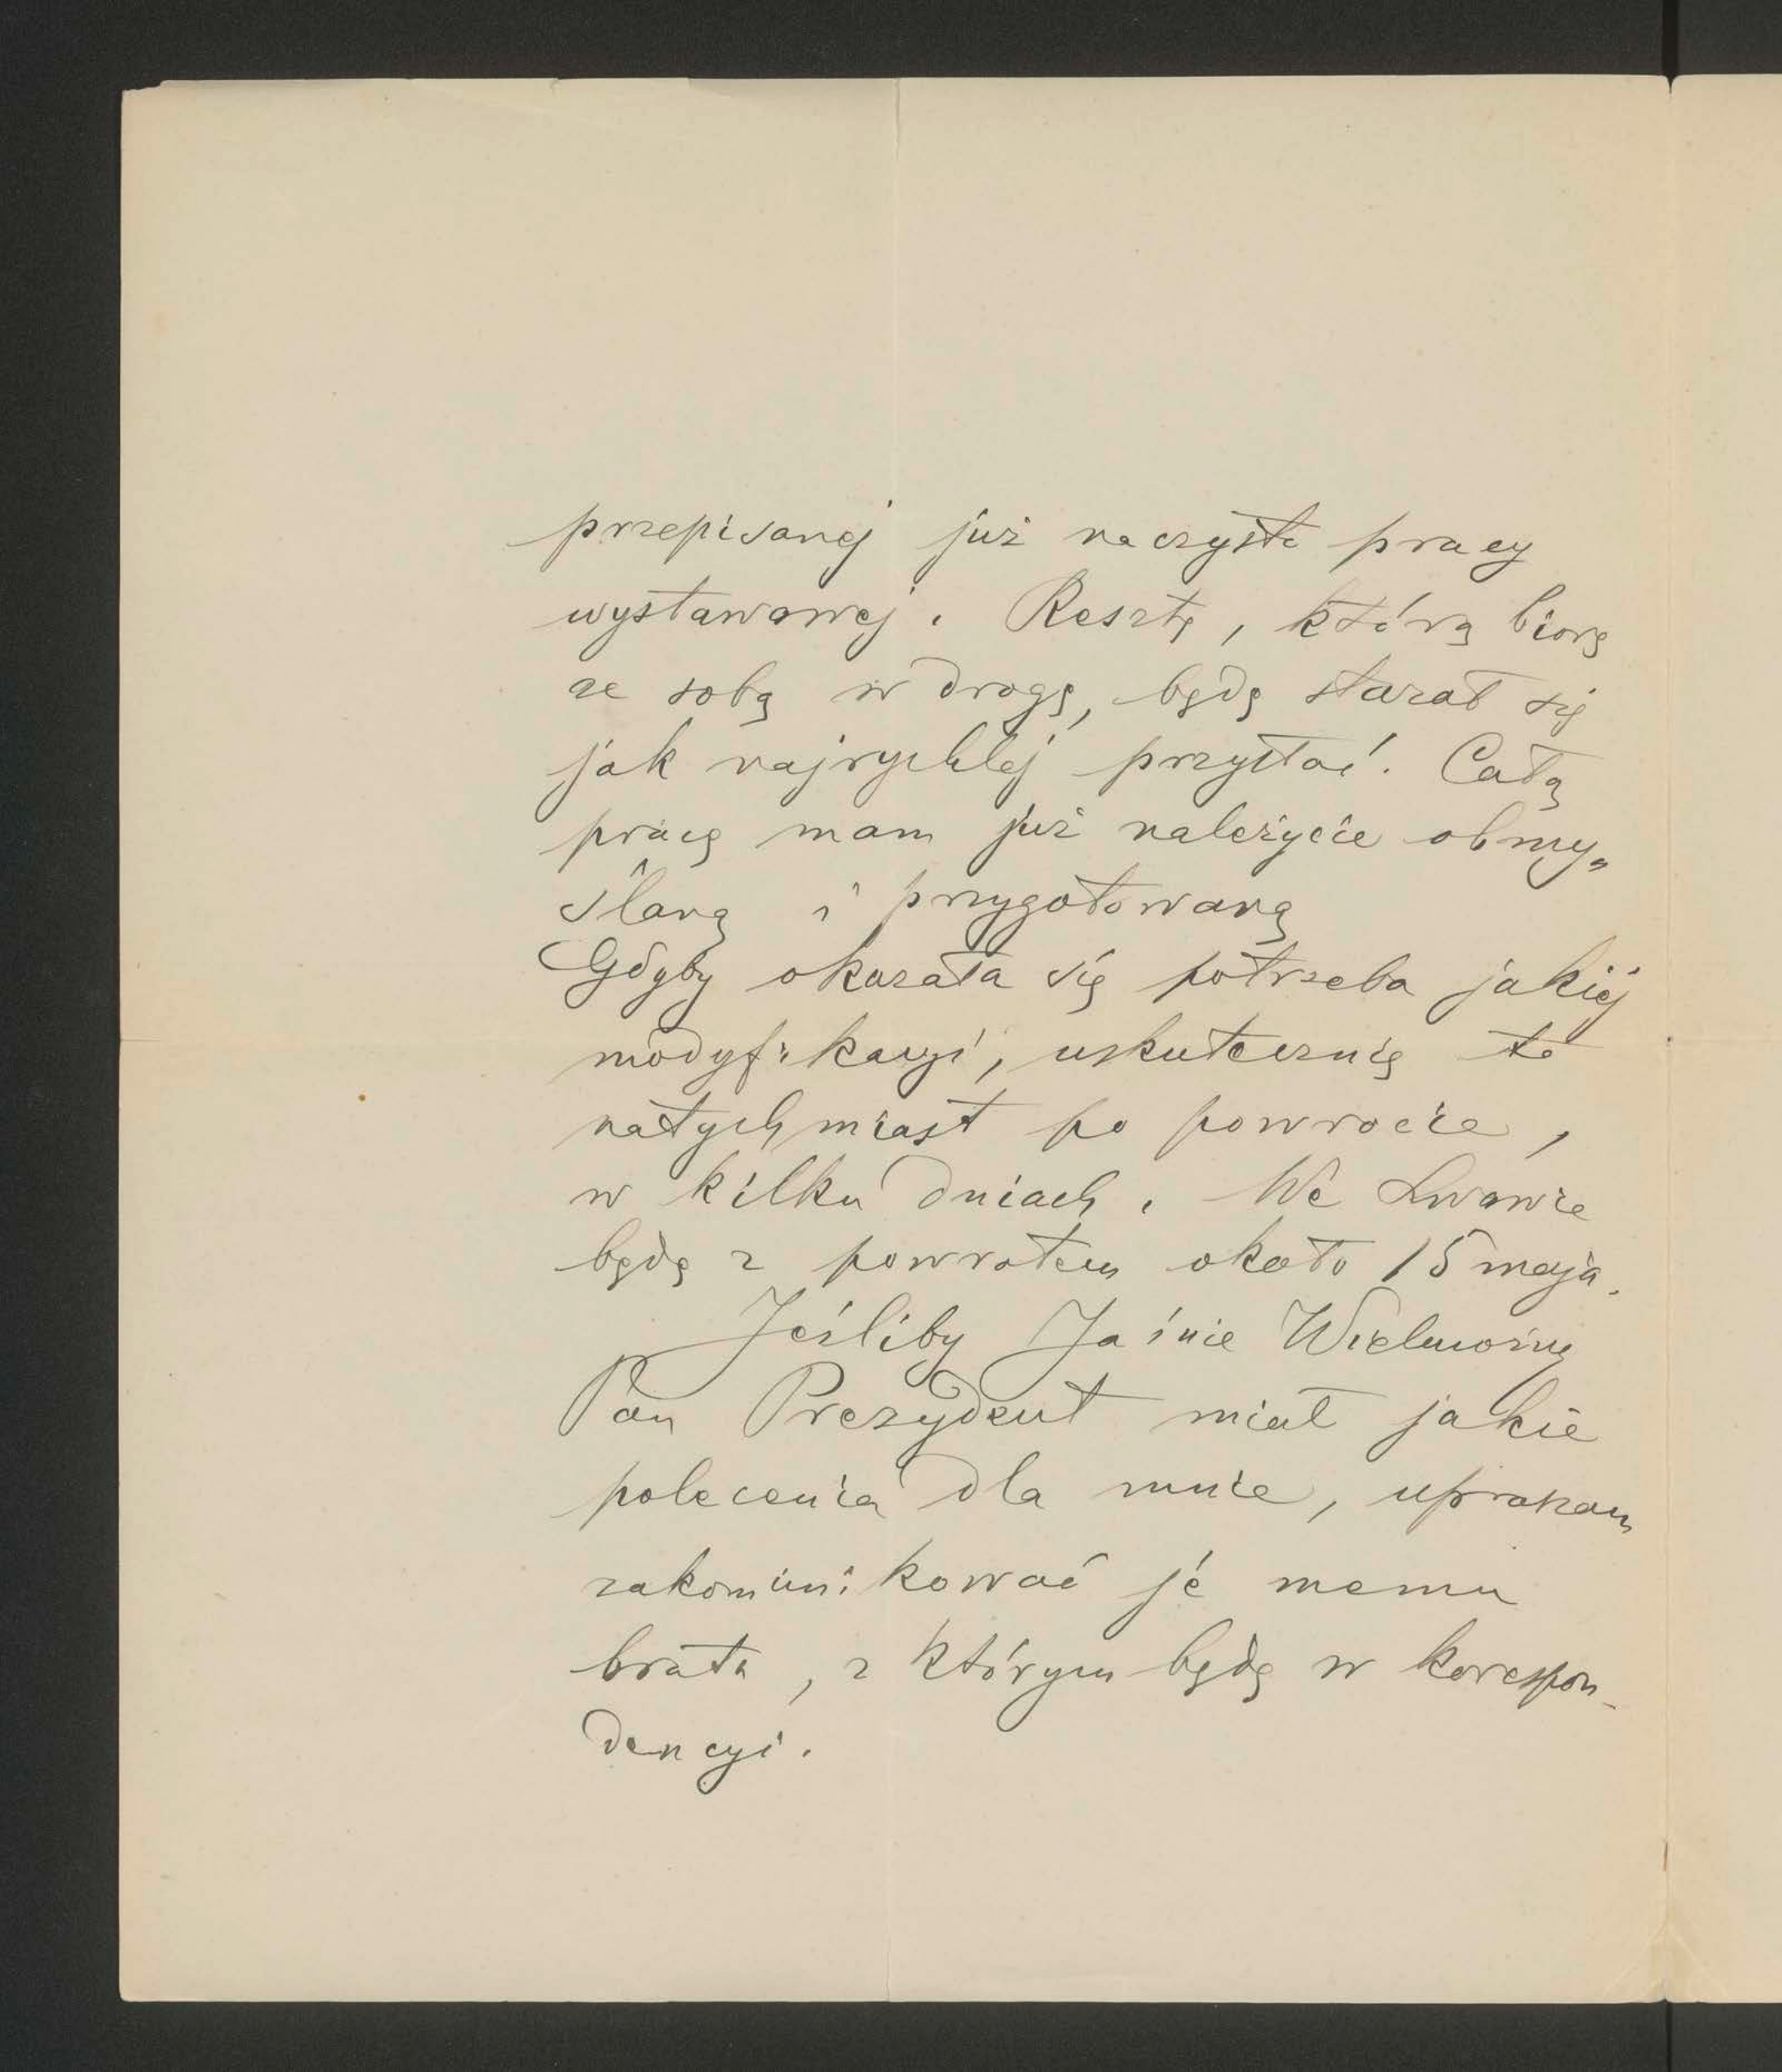 przepisanej już na czysto pracy
wystawowej. Resztę, którą biorę
ze sobą w drogę, będę starał się
jak najrychlej przysłać. Całą
pracę mam już należycie obmy„
ślaną i przygotowaną
Gdyby okazała się potrzeba jakiej
modyfikacyi, uskutecznię to
natychmiast po powrocie,
w kilku dniach. We Lwowie
będę z powrotem około 15 maja.
Jeśliby Jaśnie Wielmożny
Pan Prezydent miał jakie
polecenia dla mnie, upraszam
zakomunikować je memu
bratu, z którym będę w korespon-
dencyi.